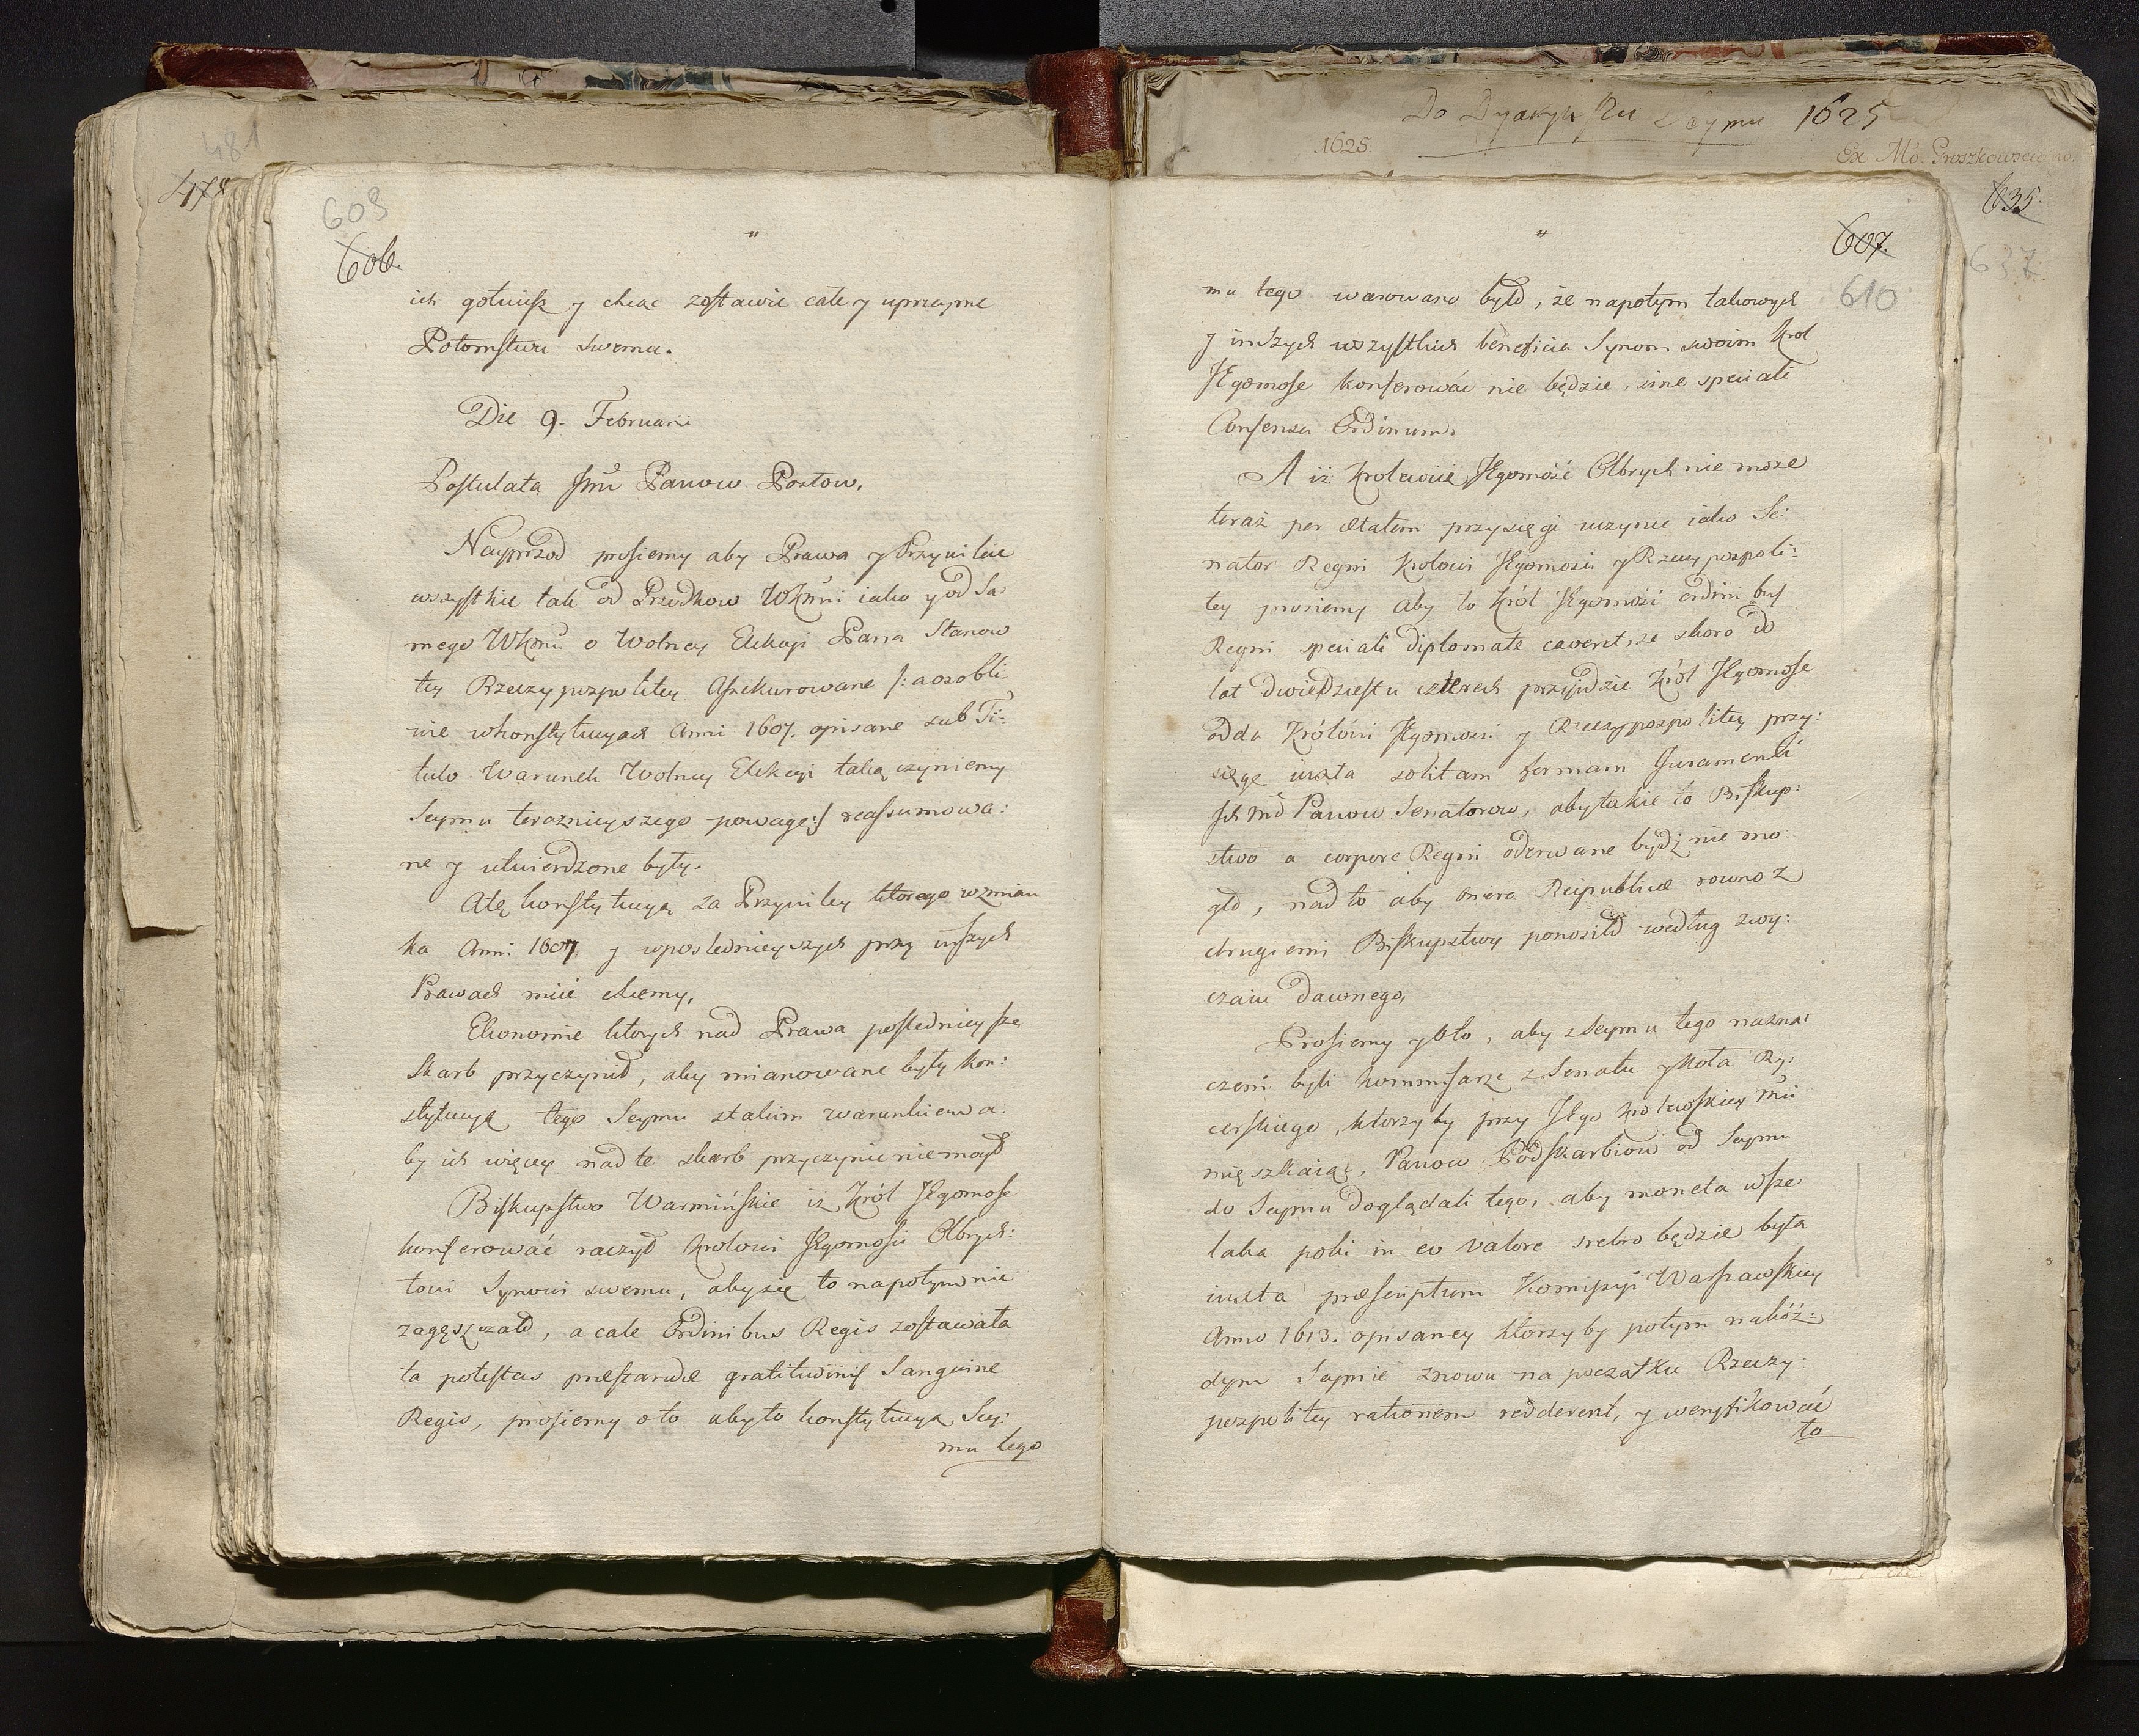 481
478
609
606.
"
ich gotowość y chęć zostawić całe y uprzeyme
Potomstwu swemu.
Die 9. Februarii
Postulata Jmć Panow Posłow.
Nayprzod prosiemy aby Prawa y Przywileie
wszystkie tak od Przodkow WKmći iako y od Sa-
mego WKmći o Wolney Elekcyi Pana Stanow
tey Rzeczypospolitey Assekurowane /: a osobli
wie w konstytucyach Anni 1607. opisane sub Ti-
tulo Warunek Wolney Elekcyi taką czyniemy
Seymu teraznieyszego powagę :/ reassumowa:
ne y utwierdzone były.
A tę konstytucyą za Przywiley ktorego wzmian
ka Anni 1607 y w poslednieyszych przy inszych
Prawach mieć chcemy.
Ekonomie ktorych nad Prawa poslednieysze
Skarb przyczynił, aby mianowane były kon:
stytucyą tego Seymu z takim warunkiem a:
by ich więcey nad te skarb przyczynić nie mogł
Biskupstwo Warmińskie iż Król JEgomość
konferować raczył Krolowi JEgomości Olbrych:
towi Synowi swemu, aby się to napotym nie
zagęszczało, a cale Ordinibus Regis zostawała
ta potestas præstandæ gratitudinis Sanguine
Regis, prosiemy o to aby to konstytucyą Sey:
mu tego
Do Dyaryu Seymu 1625
1625.
Ex Mo. Groszkowsciano.
635.
637.
"
607.
610
mu tego warowano było, że napotym takowych
y inszych wszystkich beneficia Synom swoim Krol
JEgomość konferować nie będzie, sine speciali
Consensu Ordinum.
A iż Krolewic JEgomość Olbrych nie może
teraz per ætatem przysięgi uczynić iako Se:
nator Regni Krolowi JEgomości y Rzeczypospoli:
tey prosiemy aby to Król JEgomość ordinibus
Regni speciali diplomate caveret, że skoro do
lat dwudziestu czterech przyjdzie Król JEgomość
odda Królowi JEgomości y Rzeczypospolitey przy:
sięgę iuxta solitam formam Juramenti
Jch Mć Panow Senatorow, aby takie to Biskup:
stwo a corpore Regni oderwane bydź nie mo
gło, nad to aby onera Reipublicæ rowno z
drugiemi Biskupstwy ponosiło według zwy:
czaiu dawnego,
Prosiemy y o to, aby z Seymu tego nazna:
czeni byli kommisarze z Senatu y koła Ry:
cerskiego, ktorzy by przy JEgo Krolewskiey Mći
mięszkaiąc, Panow Podskarbiow od Seymu
do Seymu doglądali tego, aby moneta wsze:
laka poki in eo valore srebro będzie była
iuxta præscriptum Komiszyi Warszawskiey
Anno 1613. opisaney ktorzy by potym na kóż:
dym Seymie znowu na początku Rzeczy
pospolitey rationem redderent, y weryfikować
to